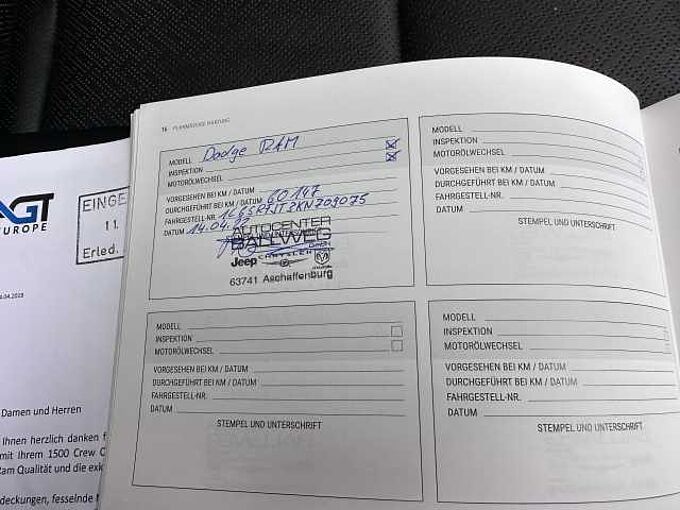 AGT
EUROPE
EINGE
11.
Erled.
.04.2019
Damen und Herren
Ihnen herzlich danken f
mit Ihrem 1500 Crew C
Ram Qualität und die exk
deckungen, fesselnde
16 PLANMÄSSIGE WARTUNG
MODELL Dodge RAM
INSPEKTION
MOTORÖLWECHSEL
VORGESEHEN BEI KM / DATUM
DURCHGEFÜHRT BEI KM / DATUM 60 147
FAHRGESTELL-NR.
DATUM 14.04.22
AUTOCENTER
BALLWEG
Jeep CHRYSLER
63741 Aschaffenburg
MODELL
INSPEKTION
MOTORÖLWECHSEL
VORGESEHEN BEI KM / DATUM
DURCHGEFÜHRT BEI KM / DATUM
FAHRGESTELL-NR.
DATUM
STEMPEL UND UNTERSCHRIFT
MODELL
INSPEKTION
MOTORÖLWECHSEL
VORGESEHEN BEI KM / DATUM
DURCHGEFÜHRT BEI KM / DATUM
FAHRGESTELL-NR.
DATUM
STEMPEL UND UNTERSCHRIFT
MODELL
INSPEKTION
MOTORÖLWECHSEL
VORGESEHEN BEI KM / DATUM
DURCHGEFÜHRT BEI KM / DATUM
FAHRGESTELL-NR.
DATUM
STEMPEL UND UNTERSCHRIFT